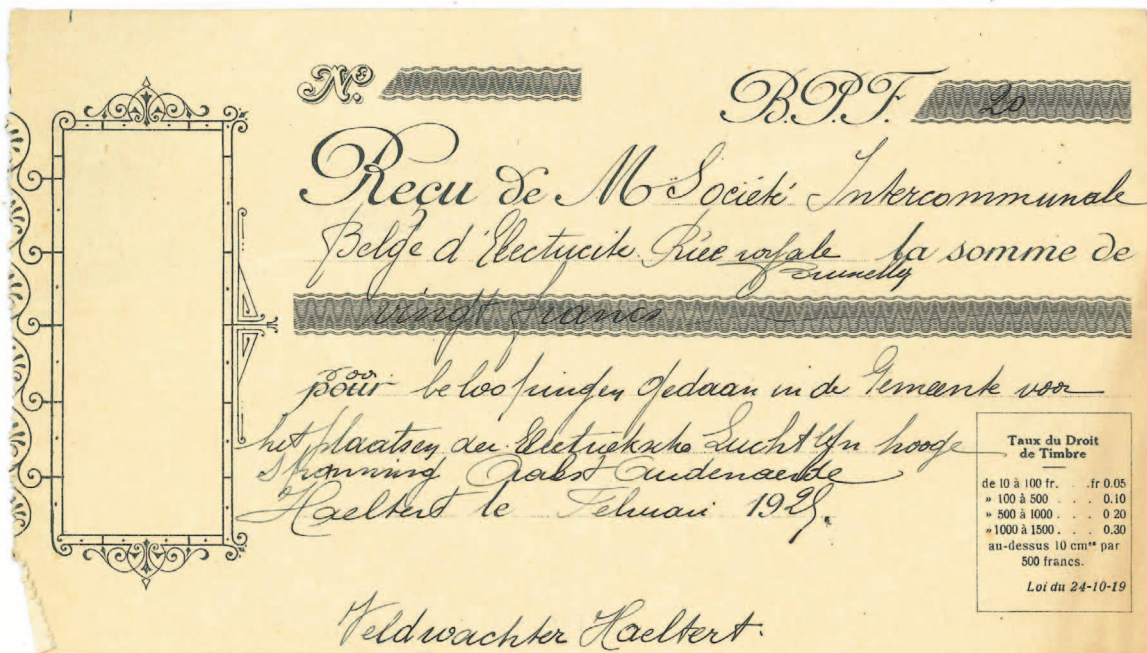 N° B.P.F. 20
Reçu de M Société Intercommunale
Belge d'Electricité Rüe royale la somme de
Bruxelles
vingt francs
voor
pour beloopingen gedaan in de Gemeente voor
het plaatsen der Electrieksche Luchtlijn hooge
spanning Aalst Audenaerde
Haeltert le Februari 1925.
Veldwachter Haeltert.
Taux du Droit
de Timbre
de 10 à 100 fr. . fr 0.05
» 100 à 500 . . . 0.10
» 500 à 1000 . . . 0 20
» 1000 à 1500 . . . 0.30
au-dessus 10 cmes par
500 francs.
Loi du 24-10-19